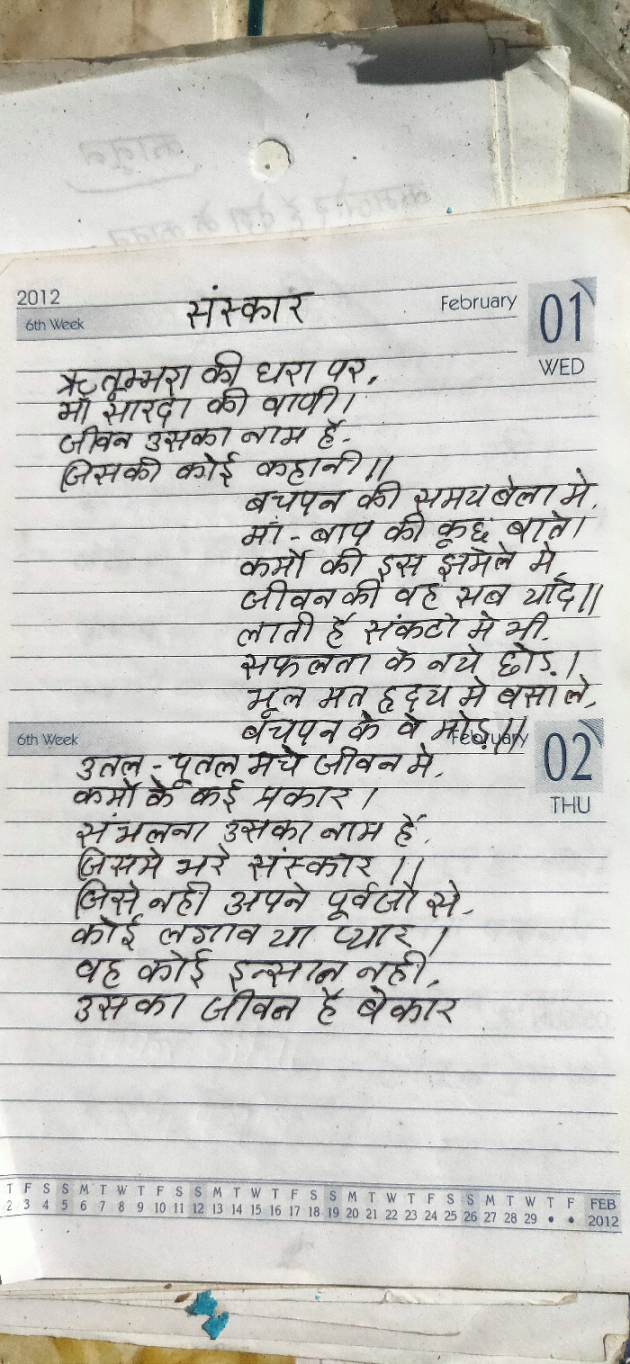 2012
6th Week
संस्कार
February
01
WED
ऋतूम्भरा की धरा पर,
माँ सारदा की वाणी।
जीवन उसका नाम हैं.
जिसकी कोई कहानी॥
बचपन की समय बेला मे,
माँ-बाप की कूछ बाते।
कर्मो की इस झमेले मे
जीवन की वह सब यादे॥
लाती हैं संकटो मे भी.
सफलता के नये छोड़.।
भूल मत हृदय मे बसा ले,
बचपन के वे मोड़॥
6th Week
February
02
THU
उतल-पूतल मचे जीवन मे.
कर्मो के कई प्रकार।
संभलना उसका नाम हैं.
जिसमे भरे संस्कार॥
जिसे नही अपने पूर्वजो से.
कोई लगाव या प्यार।
वह कोई इन्सान नही.
उसका जीवन हैं बेकार
T F S S M T W T F S S M T W T F S S M T W T F S S M T W T F FEB
2 3 4 5 6 7 8 9 10 11 12 13 14 15 16 17 18 19 20 21 22 23 24 25 26 27 28 29 • • 2012